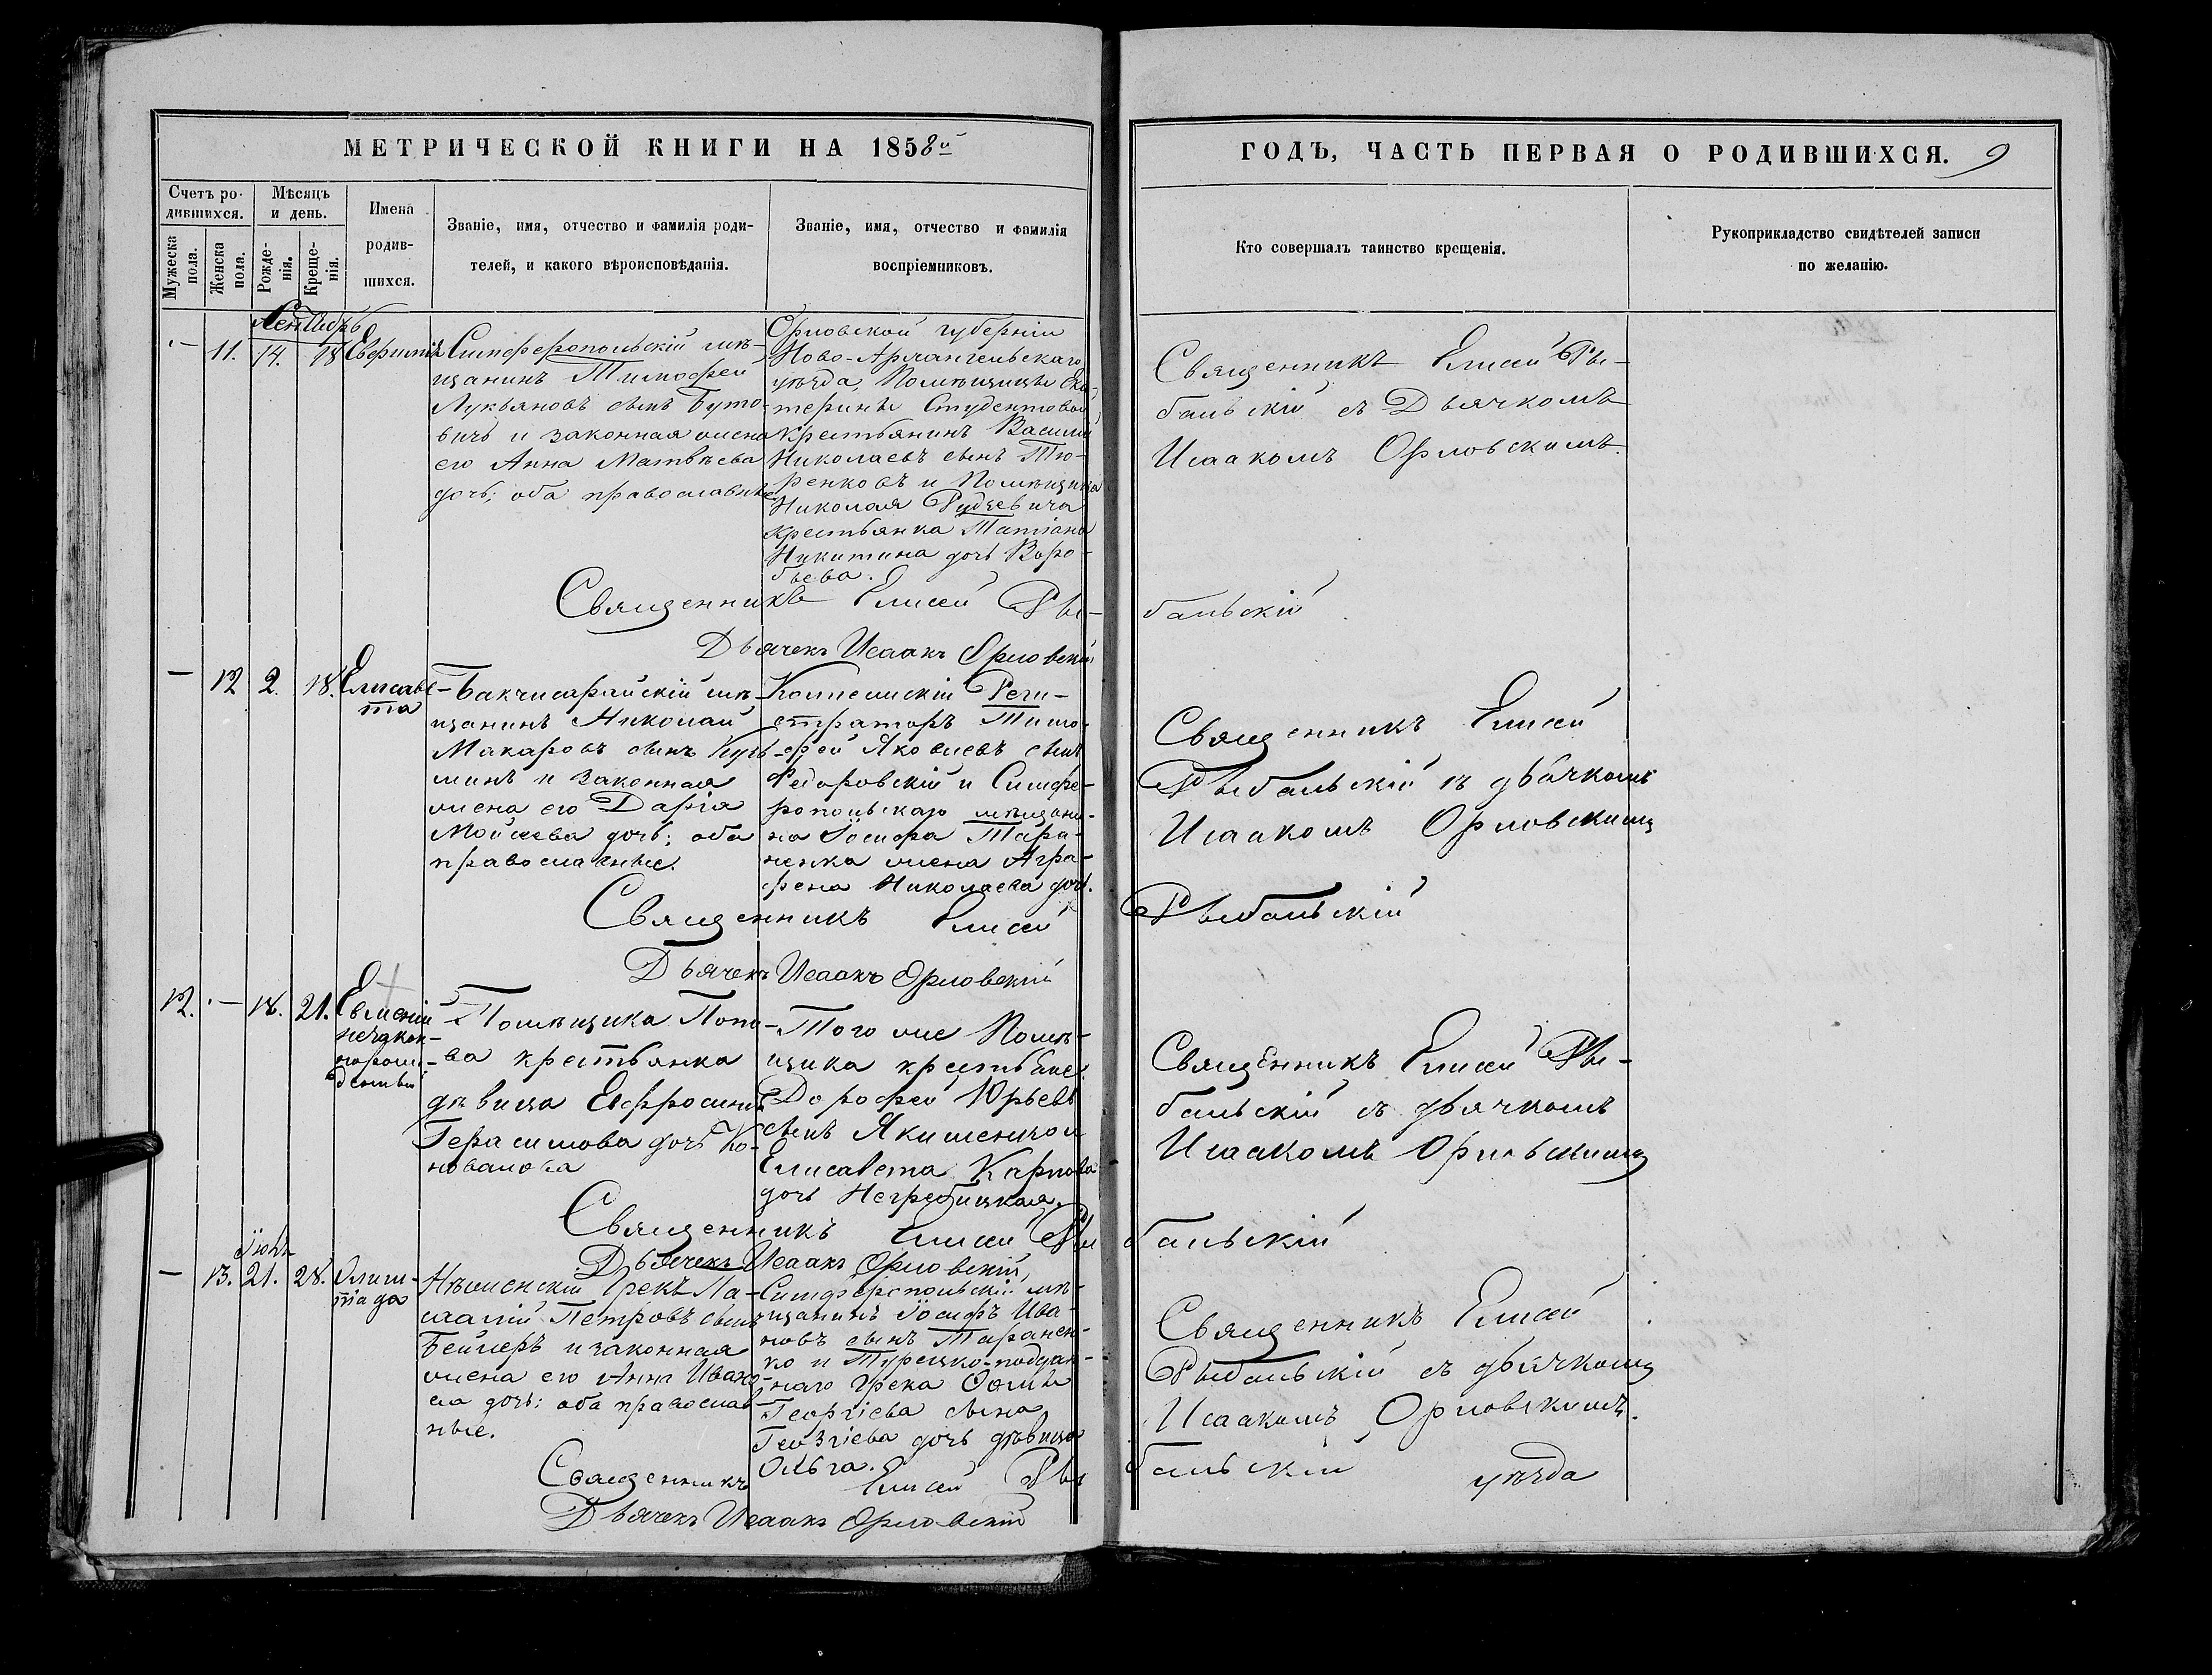 МЕТРИЧЕСКОЙ КНИГИ НА 1858й
ГОДЪ, ЧАСТЬ ПЕРВАЯ О РОДИВШИХСЯ. 9
Счетъ ро-
дившихся.
Мужеска пола.
Женска пола.
Мѣсяцъ
и день.
Рожде-
нія.
Креще-
нія.
Имена
родив-
шихся.
Званіе, имя, отчество и фамилія роди-
телей, и какого вѣроисповѣданія.
Званіе, имя, отчество и фамилія
воспріемниковъ.
Кто совершалъ таинство крещенія.
Рукоприкладство свидѣтелей записи
по желанію.
Сентябрь
— 11. 14. 18
Симферопольскій мѣ-
щанинъ Тимофей
Лукьяновъ сынъ Буто-
вичъ и законная жена
его Анна Матвѣева
дочь; оба православные
Орловской губерніи
Ново-Архангельскаго
уѣзда, Помѣщицы Ека-
терины Студентовой
крестьянинъ Василій
Николаевъ сынъ Тю-
ренковъ и Помѣщика
Николая Рудзевича
крестьянка Татіана
Никитина дочь Воро-
бьева.
Священникъ Елисей Ры-
бальскій съ Дьячкомъ
Исаакомъ Орловскимъ.
Священникъ Елисей Ры-
бальскій
Дьячекъ Исаакъ Орловскій
— 12 2. 18. Елисаве-
та
Бакчисарайскій мѣ-
щанинъ Николай
Макаровъ сынъ Кузь-
минъ и законная
жена его Дарія
Мойсеева дочь; оба
православные.
Коллежскій Реги-
страторъ Тимо-
фей Яковлевъ сынъ
Федоровскій и Симфе-
ропольскаго мѣщани-
на Іосифа Тара-
ненка жена Агра-
фена Николаева дочь.
Священникъ Елисей
Рыбальскій съ дьячкомъ
Исаакомъ Орловскимъ
Священникъ Елисей
Рыбальскій
Дьячекъ Исаакъ Орловскій
12. — 18. 21. Евменій
незакон-
норож-
денный
Помѣщика Попо-
ва крестьянка
дѣвица Евфросинія
Герасимова дочь Ко-
новалова
Того же Помѣ-
щика крестьяне:
Дорофей Юрьевъ
сынъ Якименко и
Елисавета Карпова
дочь Негребицкая.
Священникъ Елисей Ры-
бальскій съ дьячкомъ
Исаакомъ Орловскимъ
Священникъ Елисей Ры
бальскій
Дьячекъ Исаакъ Орловскій
Іюнь
— 13. 21. 28. Олимпіада
Нѣженскій Грекъ Па-
Петровъ сынъ
и законная
жена его Анна Ивано-
ва дочь: оба православ-
ные.
Симферопольскій мѣ-
щанинъ Іосифъ Ива-
новъ сынъ Таранен-
ко и Турецко-поддан-
наго Грека Фомы
Георгіева сына
Георгіева дочь дѣвица
Ольга.
Священникъ Елисей
Рыбальскій съ дьячкомъ
Исаакомъ Орловскимъ.
Священникъ Елисей Ры
бальскій уѣзда
Дьячекъ Исаакъ Орловскій